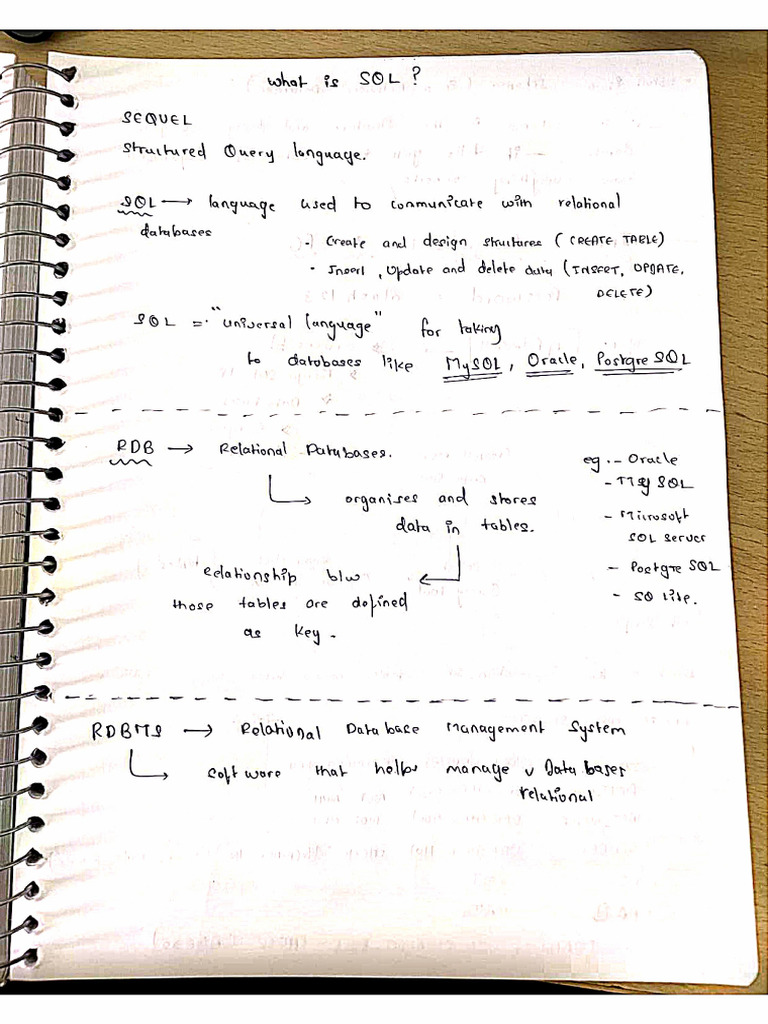 What is SQL?
SEQUEL
Structured Query language.
SQL → language used to communicate with relational
databases
· Create and design structures (CREATE, TABLE)
· Insert, Update and delete data (INSERT, UPDATE,
DELETE)
SQL = "universal language" for taking
to databases like MySQL, Oracle, PostgreSQL
RDB → Relational Databases.
eg.- Oracle
- MySQL
- Microsoft
SQL Server
- PostgreSQL
- SQ Lite.
organises and stores
data in tables.
Relationship b/w
those tables are defined
as key.
RDBMS → Relational Database Management System
Software that helps manage v Databases
relational